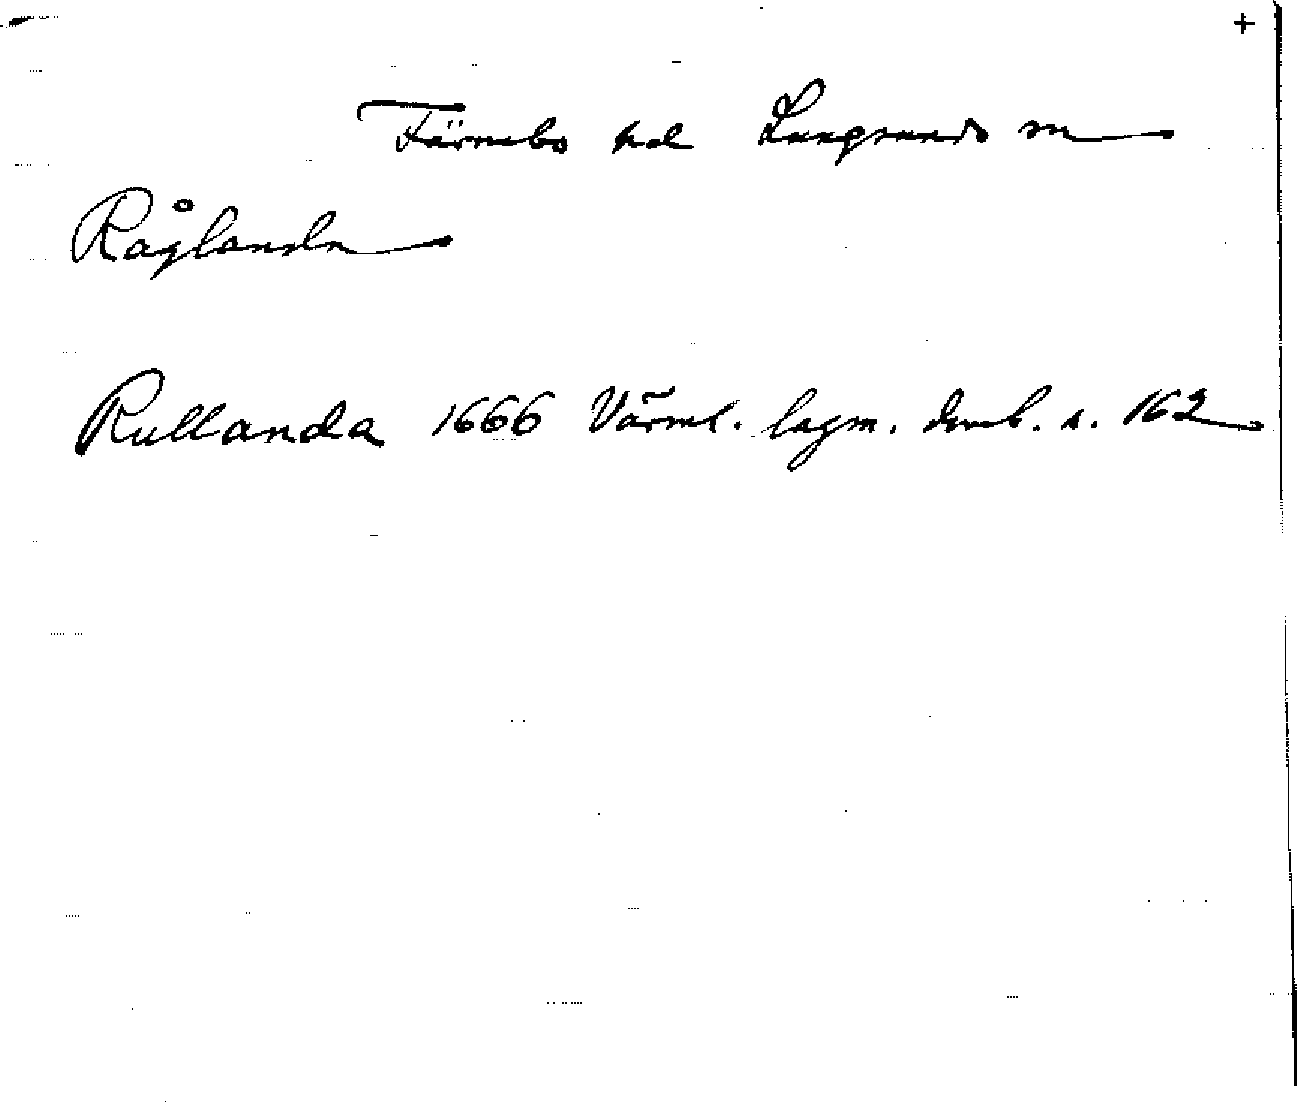 +
Färnebo hd Lungsunds sn
Råglanda
Rullanda 1666 Värml. lagm. domb. s. 162